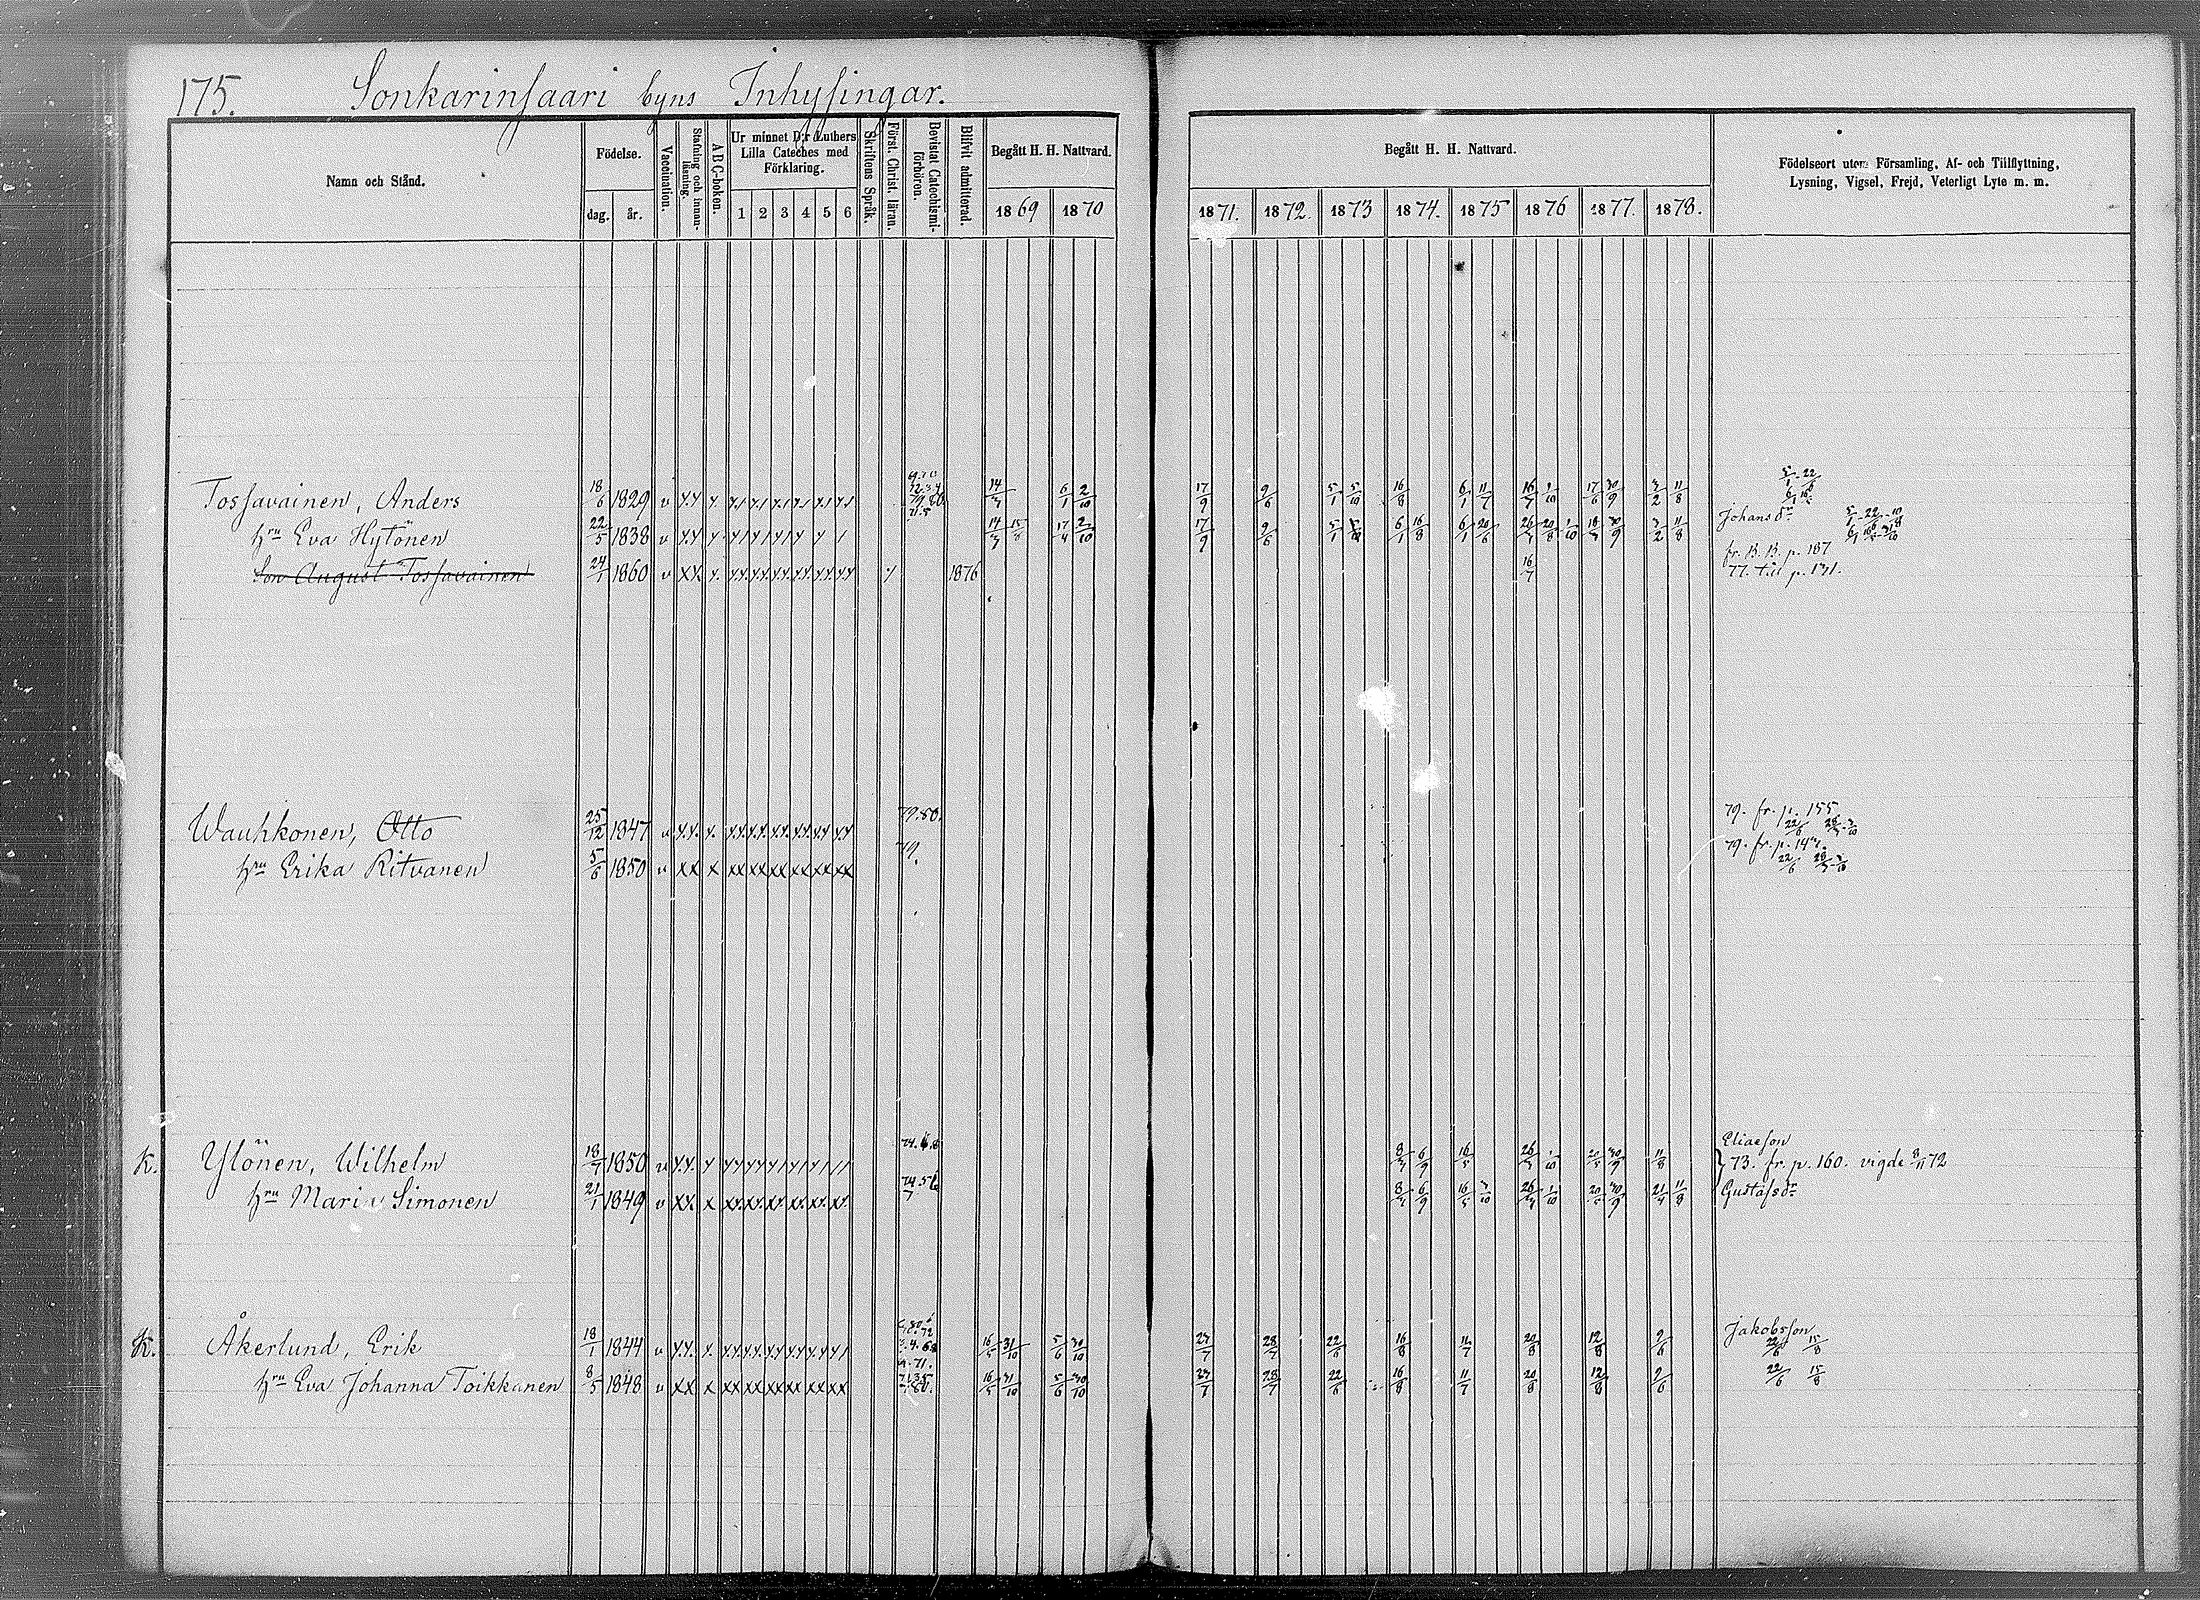 175. Sonkarinsaari byns Inhysingar.
Namn och Stånd.
Födelse.
dag. år.
Vaccination.
Stafning och innanläsning.
A B C-boken.
Ur minnet D:r Luthers Lilla Cateches med Förklaring.
1 2 3 4 5 6
Skriftens Språk.
Först. Christ. läran.
Bevistat Catechismiförhören.
Blifvit admitterad.
Begått H. H. Nattvard.
1869 1870
Begått H. H. Nattvard.
1871. 1872. 1873 1874. 1875 1876 1877. 1878.
Födelseort utom Församling, Af- och Tillflyttning,
Lysning, Vigsel, Frejd, Veterligt Lyte m. m.
Tossavainen, Anders 18/6 1829 v 14/3 6/1 2/10 17/9 9/6 5/1 5/10 16/8 6/1 11/7 16/7 1/10 17/6 30/9 3/2 11/8
hru Eva Hytönen 22/5 1838 v 14/3 15/8 17/4 2/10 17/9 9/6 5/1 5/10 6/1 16/8 6/1 20/6 20/8 1/10 30/9 3/2 11/8 Johansdr
fr. B. B. p. 187
Son August Tossavainen 24/1 1860 v 1876 16/7 77. till p. 131.
Wauhkonen, Otto 25/12 1847 v 79.80. 79. fr. p. 155
hru Erika Ritvanen 5/6 1850 v 79. 79. fr. p.
K. Ylönen, Wilhelm 18/7 1850 v 8/3 6/9 16/5 26/3 1/10 20/5 30/9 11/8 Eliaeson
73. fr. p. 160. vigde 8/11 72
hru Maria Simonen 21/1 1849 v 8/3 6/9 16/5 3/10 26/3 1/10 20/5 30/9 21/4 11/8 Gustafsdr
K. Åkerlund, Erik 18/1 1844 v 16/5 31/10 5/6 30/10 23/7 28/7 22/6 16/8 11/7 20/8 12/8 9/6 Jakobsson
22/6 15/8
hru Eva Johanna Toikkanen 8/5 1848 v 16/5 31/10 5/6 30/10 23/7 28/7 22/6 16/8 11/7 20/8 12/8 9/6 22/6 15/8